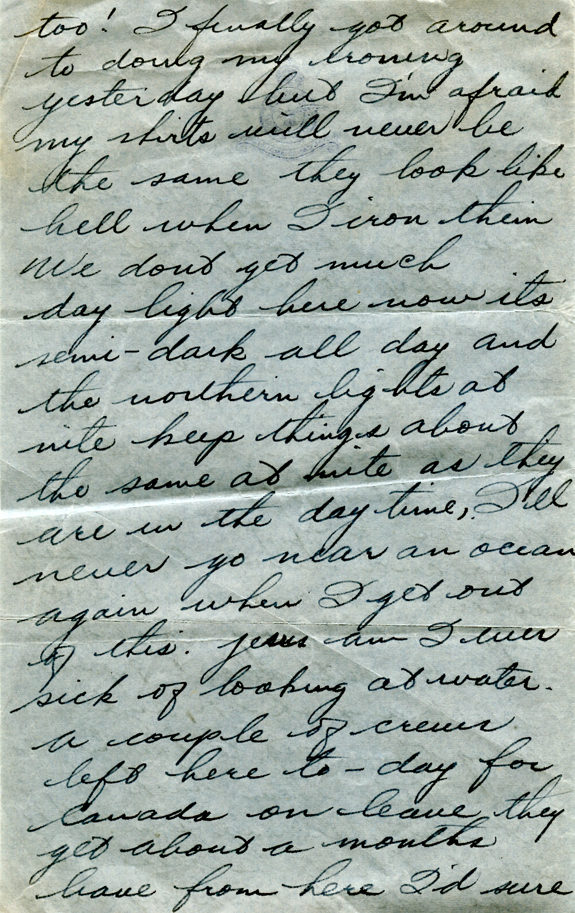 too! I finally got around
to doing my ironing
yesterday but I'm afraid
my shirts will never be
the same they look like
hell when I iron them
We dont get much
day light here now its
semi-dark all day and
the northern lights at
nite keep things about
the same at nite as they
are in the day time, I'll
never go near an ocean
again when I get out
of this. jesus am I ever
sick of looking at water.
a couple of crews
left here to-day for
Canada on leave, they
get about a months
leave from here I'd sure